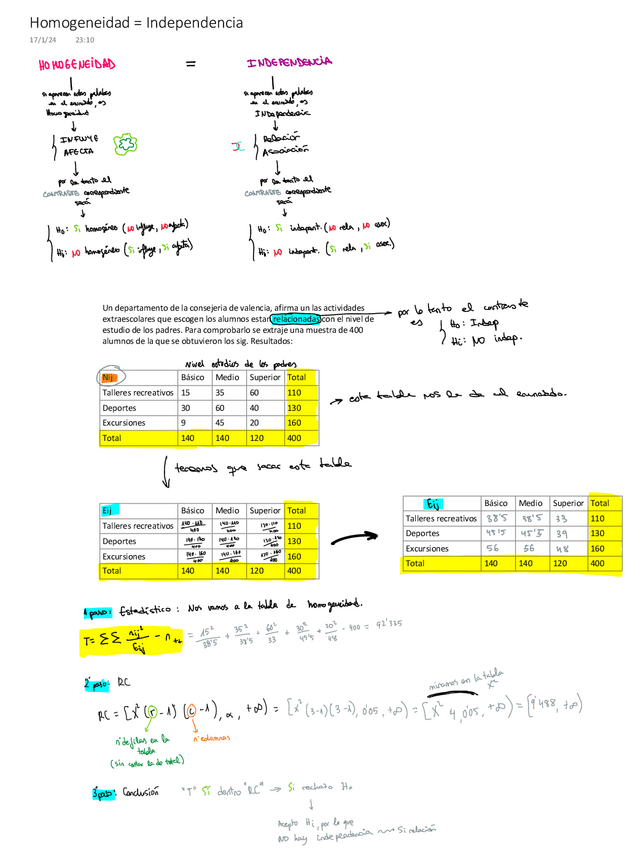 Homogeneidad = Independencia
17/1/24 23:10
HOMOGENEIDAD = INDEPENDENCIA
si aparecen estas palabras
en el enunciado, es
Homogeneidad
si aparecen estas palabras
en el enunciado, es
INDependencia
INFLUYE
AFECTA
Relación
Asociación
por lo tanto el
CONTRASTE correspondiente
será
por lo tanto el
CONTRASTE correspondiente
será
Ho: Si homogéneo (NO influye, NO afecta)
H1: NO homogéneo (Si influye, Si afecta)
Ho: Si independ. (NO rela, NO asoc)
H1: NO independ. (Si rela, Si asoc)
Un departamento de la consejeria de valencia, afirma un las actividades
extraescolares que escogen los alumnos estan relacionadas con el nivel de
estudio de los padres. Para comprobarlo se extraje una muestra de 400
alumnos de la que se obtuvieron los sig. Resultados:
por lo tanto el contraste
es Ho: Indep
H1: NO indep.
Nivel estudios de los padres
Nij Básico Medio Superior Total
Talleres recreativos 15 35 60 110
Deportes 30 60 40 130
Excursiones 9 45 20 160
Total 140 140 120 400
esta tabla nos la da el enunciado.
tenemos que sacar esta tabla
Eij Básico Medio Superior Total
Talleres recreativos 140·110/400 140·110/400 120·110/400 110
Deportes 140·130/400 140·130/400 120·130/400 130
Excursiones 140·160/400 140·160/400 120·160/400 160
Total 140 140 120 400
Eij Básico Medio Superior Total
Talleres recreativos 38'5 38'5 33 110
Deportes 45'5 45'5 39 130
Excursiones 56 56 48 160
Total 140 140 120 400
1º paso: Estadístico: Nos vamos a la tabla de homogeneidad.
T = ΣΣ nij²/Eij - n++ = 15²/38'5 + 35²/38'5 + 60²/33 + 30²/45'5 + 20²/48 - 400 = 42'335
2º paso: RC
miramos en la tabla
X²
RC = [X² (r-1) (c-1), α, +∞) = [X² (3-1)(3-1), 0'05, +∞) = [X² 4, 0'05, +∞) = [9'488, +∞)
nº de filas en la
tabla
(sin contar la de total)
nº columnas
3º paso: Conclusión "T" Si dentro "RC" → Si rechazo Ho
Acepto H1, por lo que
NO hay independencia Si relación